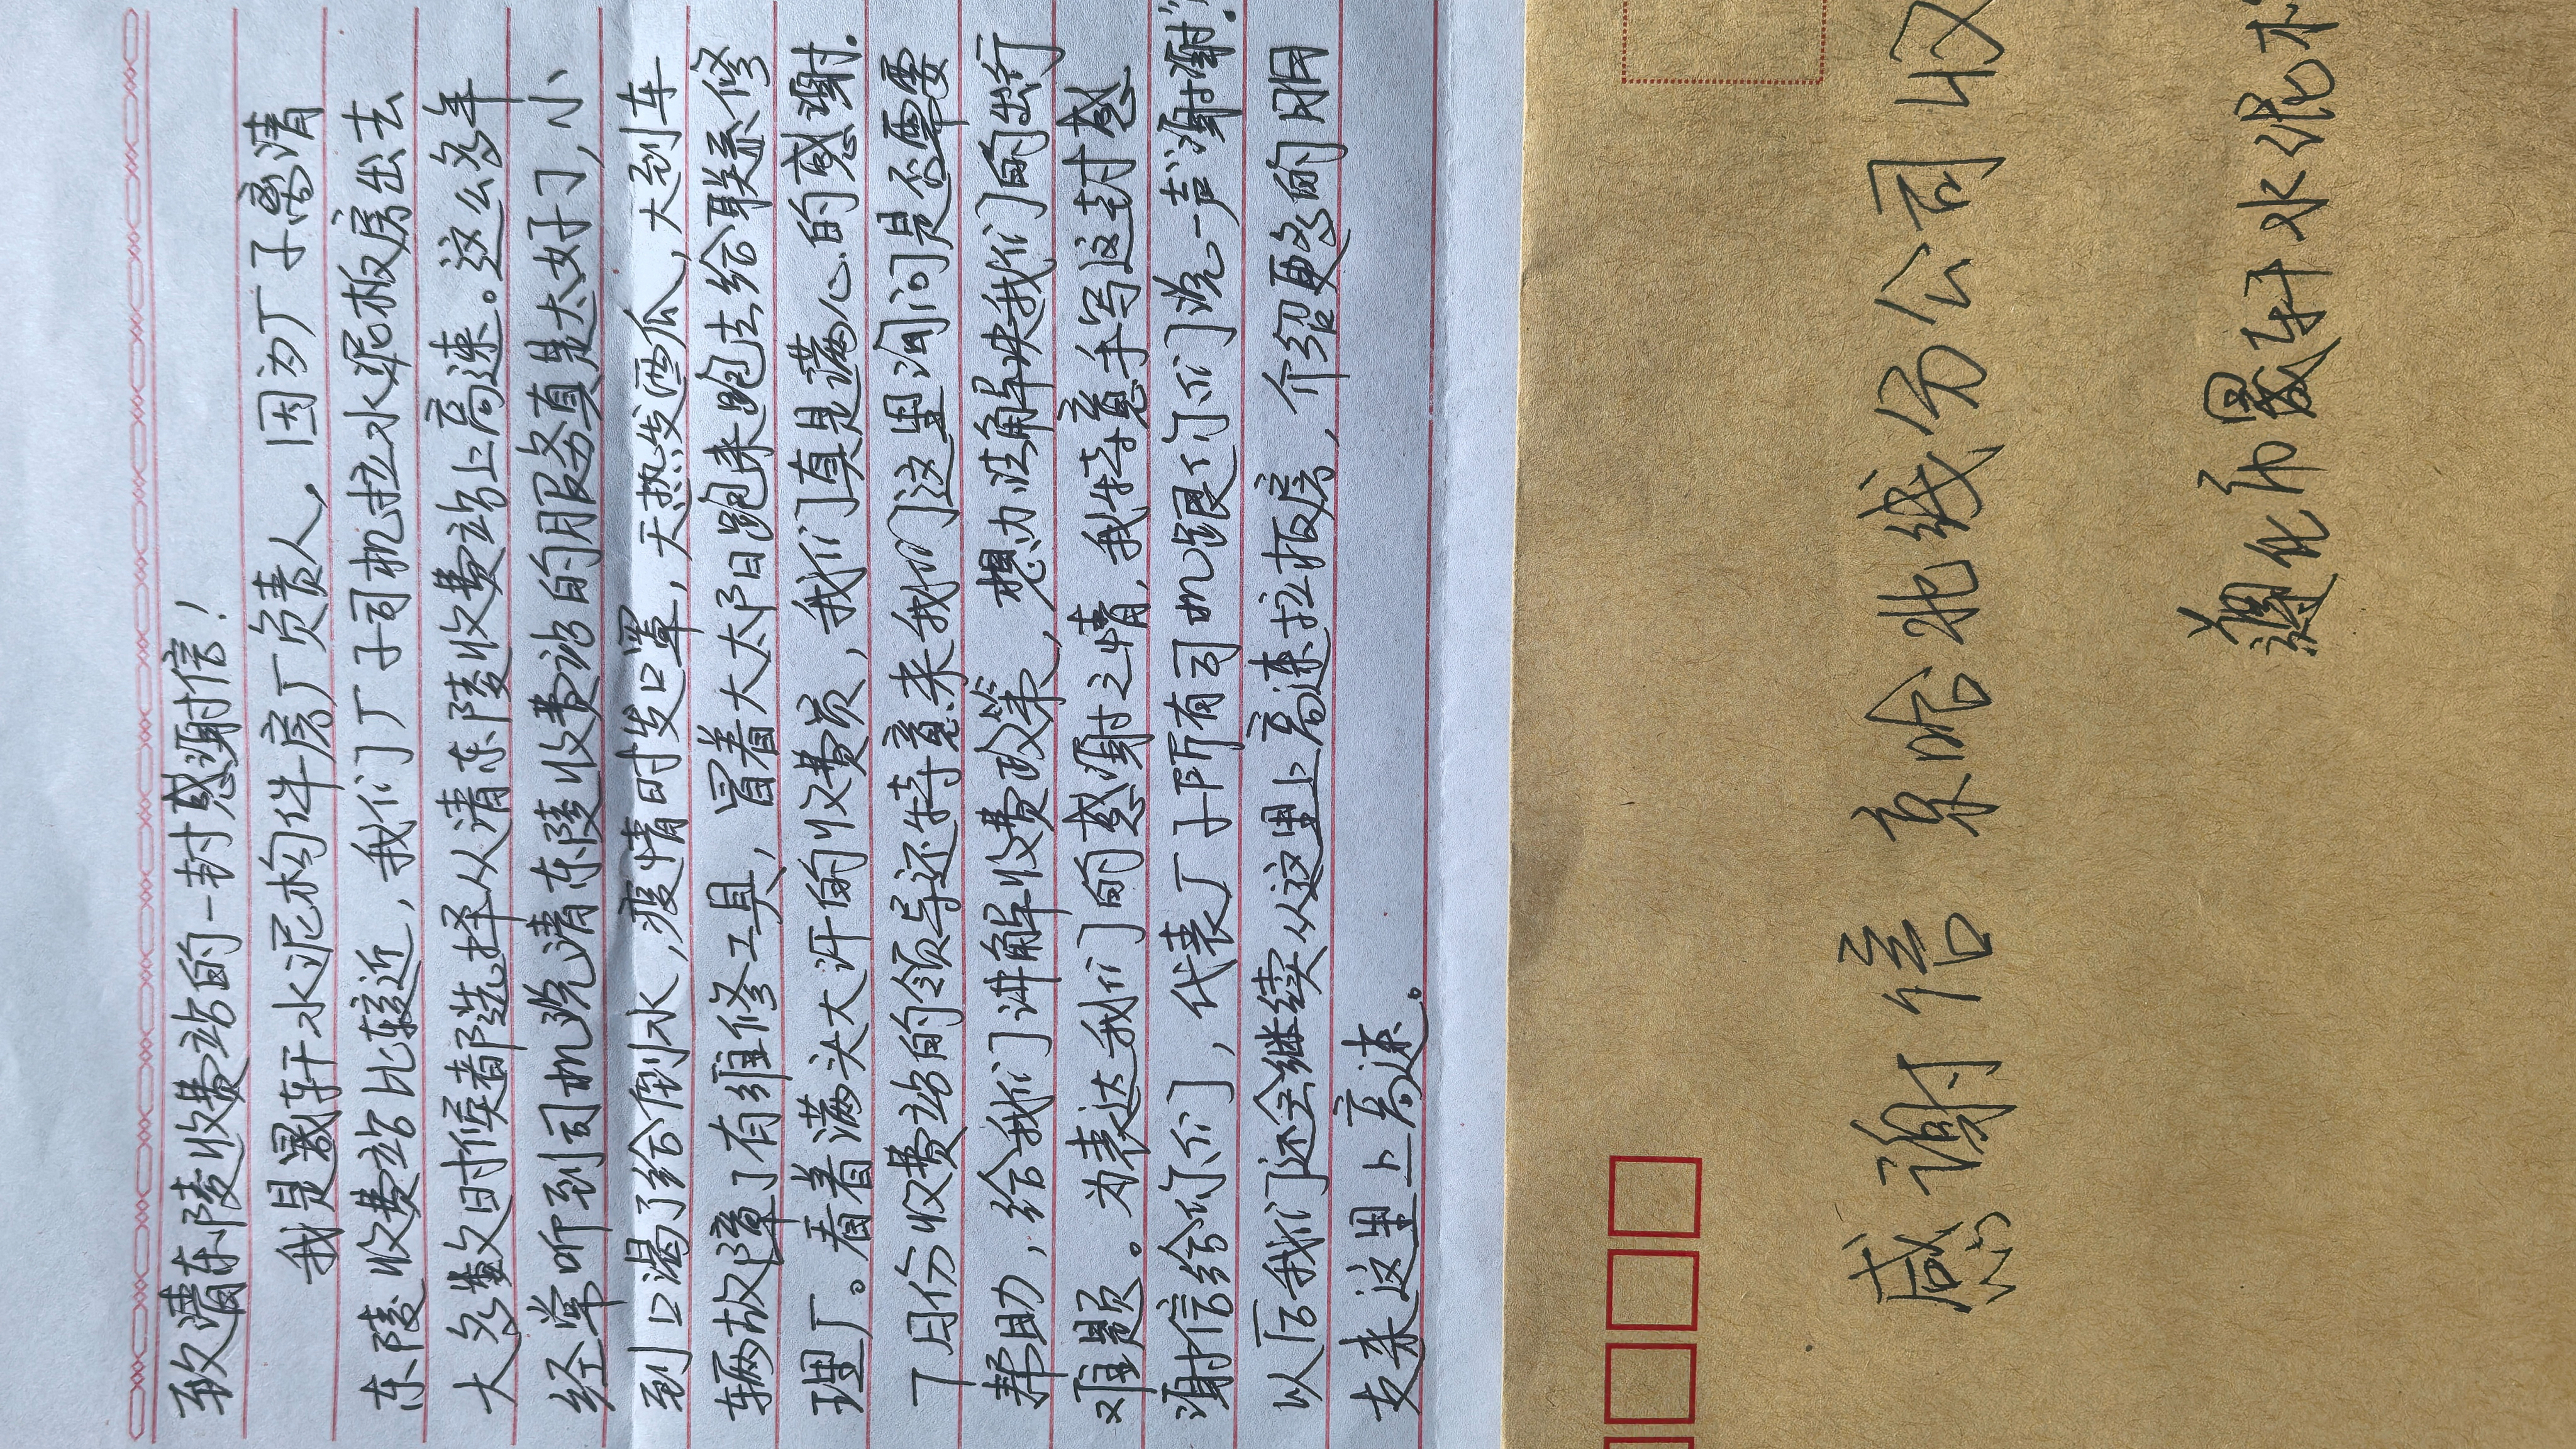 致清东陵收费站的一封感谢信！
我是晟轩水泥构件房厂负责人，因为厂子离清
东陵收费站比较近，我们厂子司机拉水泥板房出去
大多数时候都选择从清东陵收费站上高速。这么多年
经常听到司机说清东陵收费站的服务真是太好了，小
到口渴了给倒水，疫情时发口罩，天热发西瓜，大到车
辆故障了有维修工具，冒着大太阳跑来跑去给联系修
理厂。看着满头大汗的收费员，我们真是满心的感谢.
7月份收费站的领导还特意来我们这里询问是否需要
帮助，给我们讲解收费政策，想办法解决我们的出行
难题。为表达我们的感谢之情，我特意手写这封感
谢信给你们，代表厂子所有司机跟你们说一声“谢谢”.
以后我们还会继续从这里上高速拉板房，介绍更多的朋
友来这里上高速。
感谢信 京哈北线分公司 收
遵化市晟轩水泥构